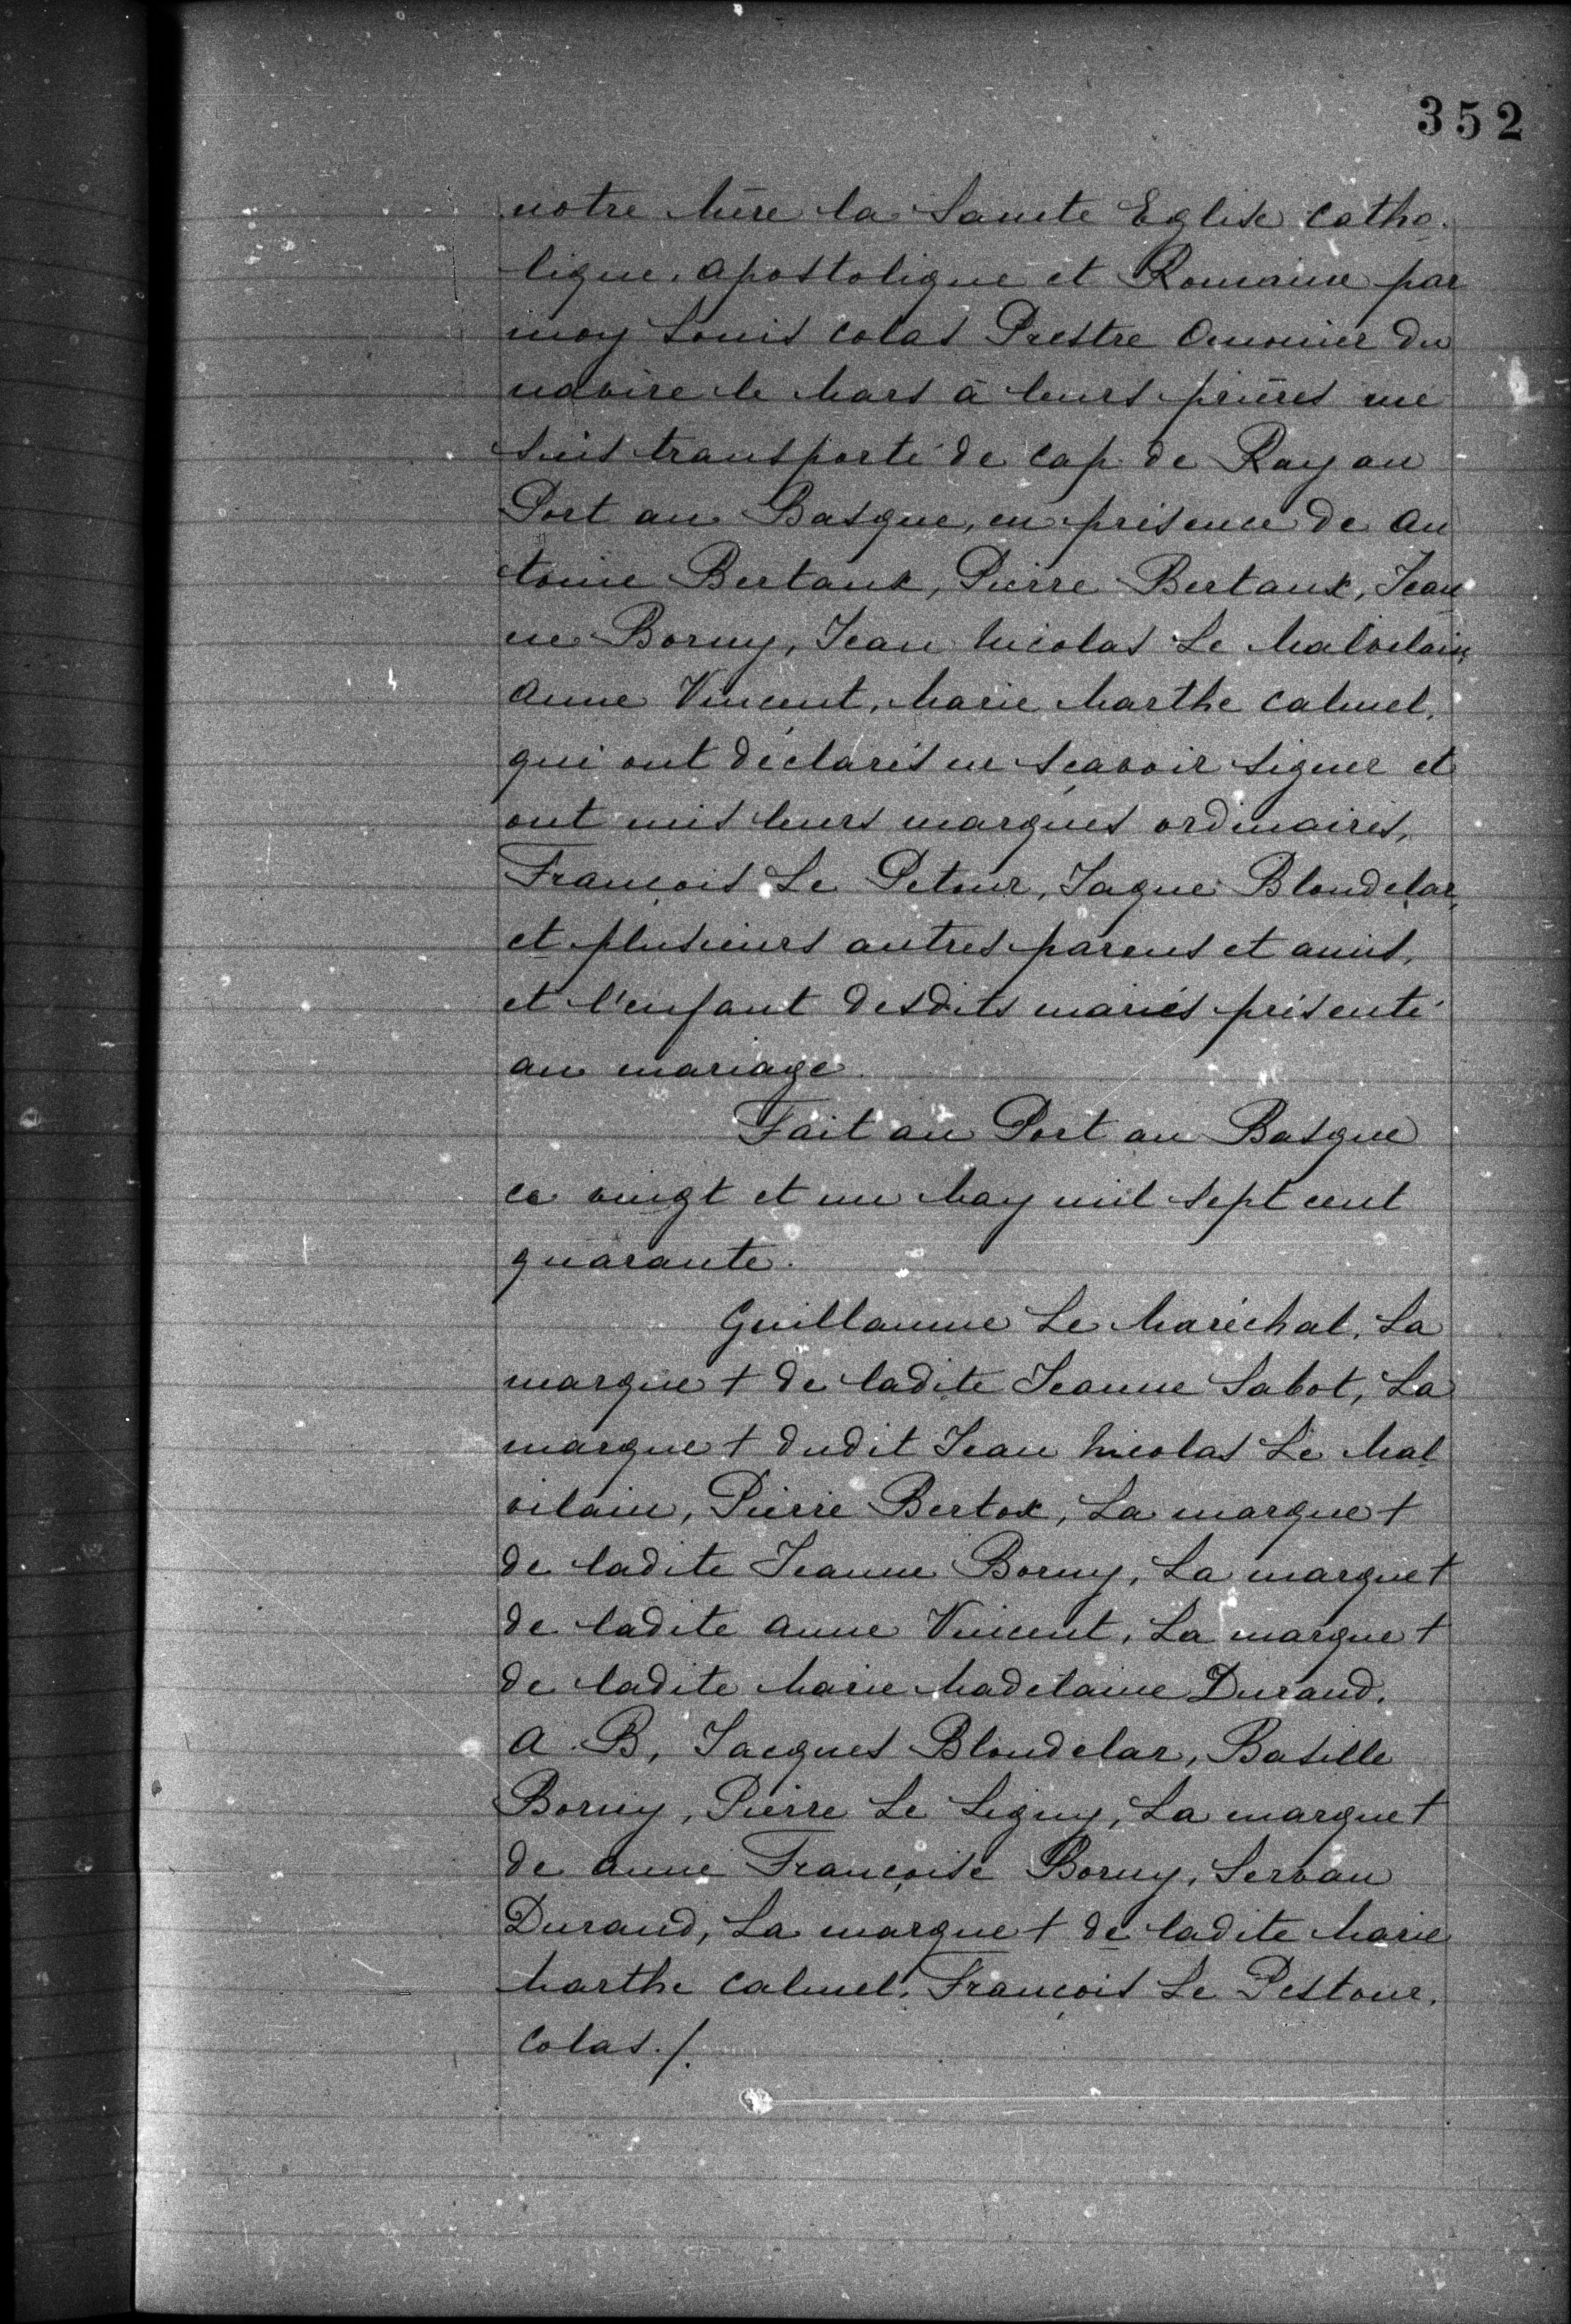 352
notre Mère la Sainte Eglise Catho-
lique, apostolique et Romaine par
moy Louis Colas Prestre Omonier du
navire le Mars à leurs prières me
suis transporté de Cap de Ray au
Port au Basque, en présence de An
toine Bertaux, Pierre Bertaux, Jean
ne Borny, Jean Nicolas Le Malvilain,
Anne Vincent, Marie Marthe Calmel,
qui ont déclarés ne sçavoir signer et
ont mis leurs marques ordinaires,
François Le Petour, Jaque Blondelar,
et plusieurs autres parens et amis,
et l'enfant desdits mariés présenté
au mariage.
Fait au Port au Basque
ce vingt et un May mil sept cent
quarante.
Guillaume Le Maréchal, La
marque + de ladite Jeanne Sabot, La
marque + dudit Jean Nicolas Le Mal
vilain, Pierre Bertox, La marque +
de ladite Jeanne Borny, La marque +
de ladite Anne Vincent, La marque +
de ladite Marie Madelaine Durand.
A. B, Jacques Blondelar, Basille
Borny, Pierre Le Ligny, La marque +
de Anne Françoise Borny, Servan
Durand, La marque + de ladite Marie
Marthe Calmel, François Le Pestour,
Colas ./.